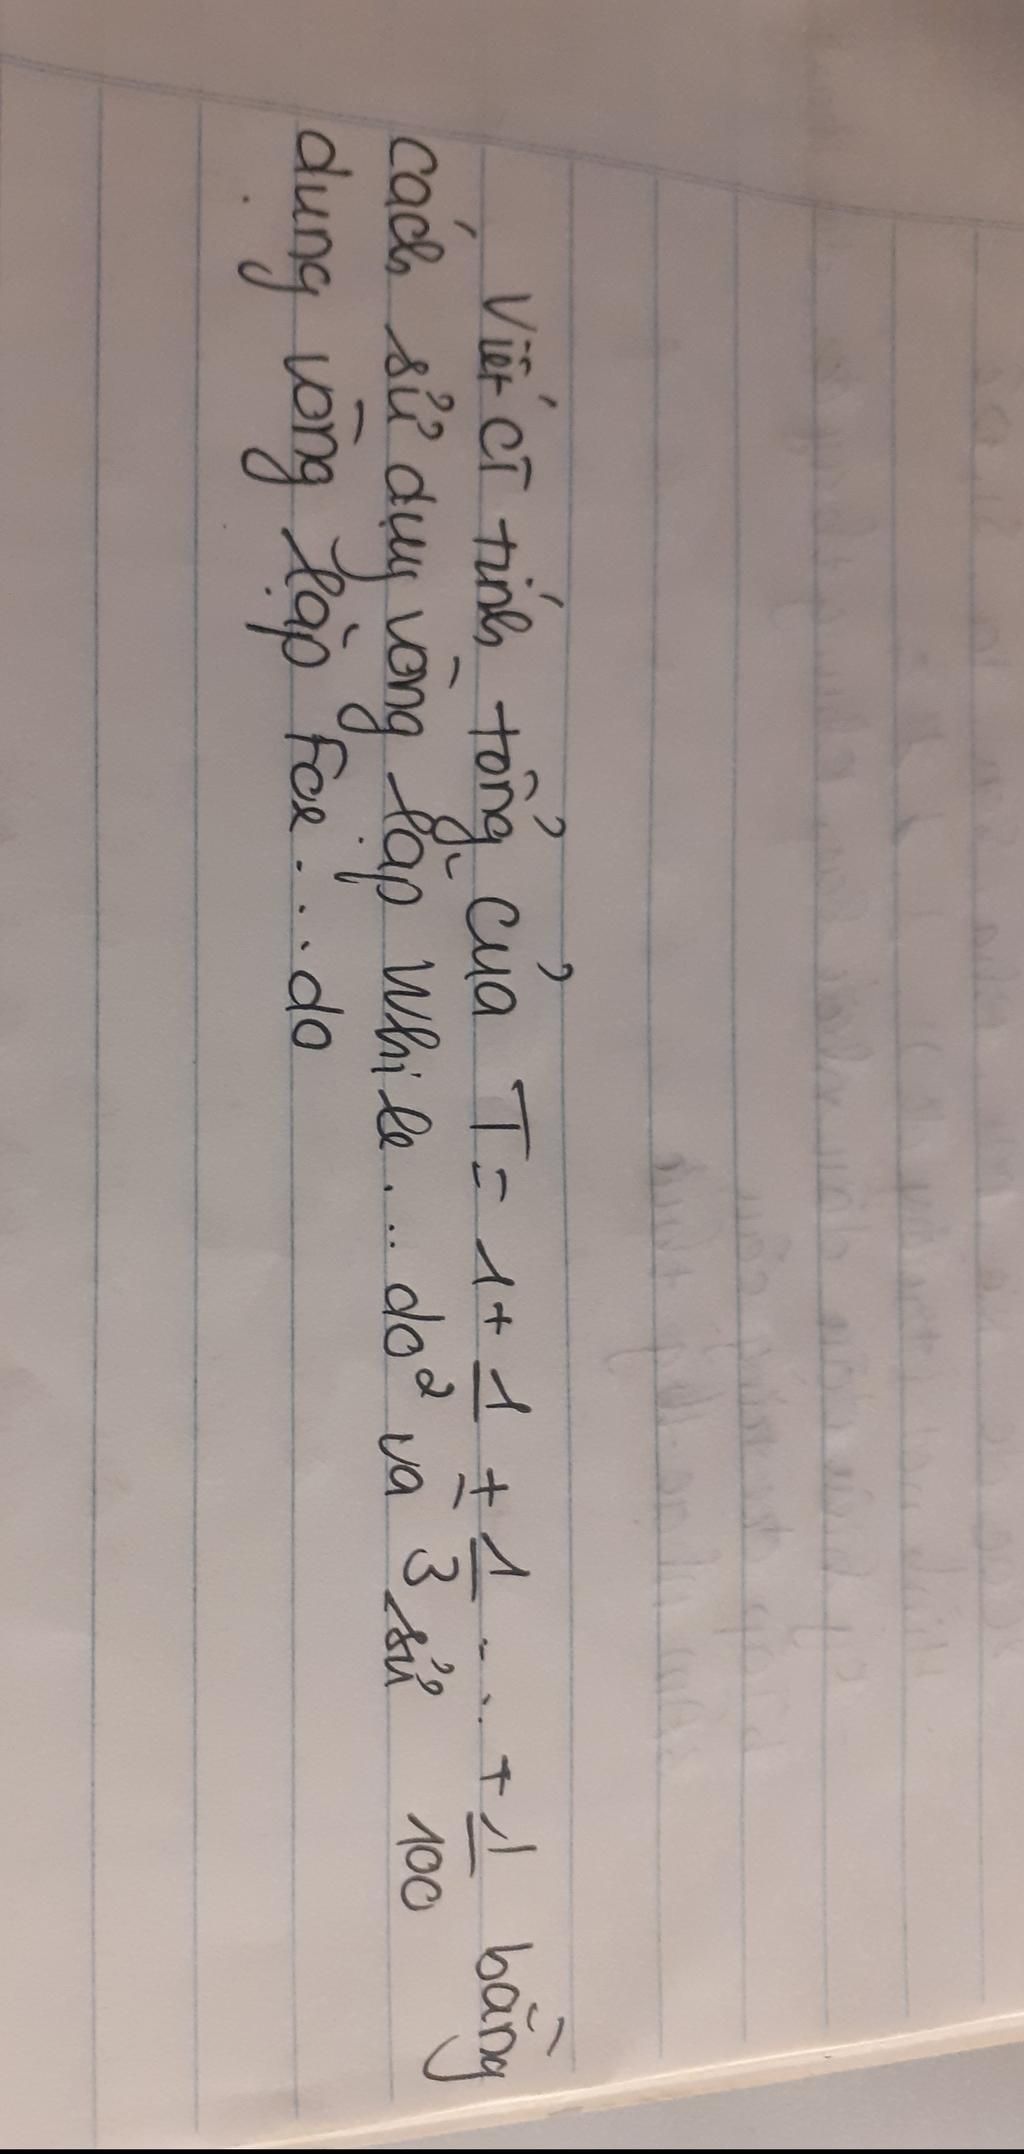 Viết CT tính tổng của T = 1 + 1/2 + 1/3 ... + 1/100 bằng
cách sử dụng vòng lặp While ... do và sử
dụng vòng lặp For ... do